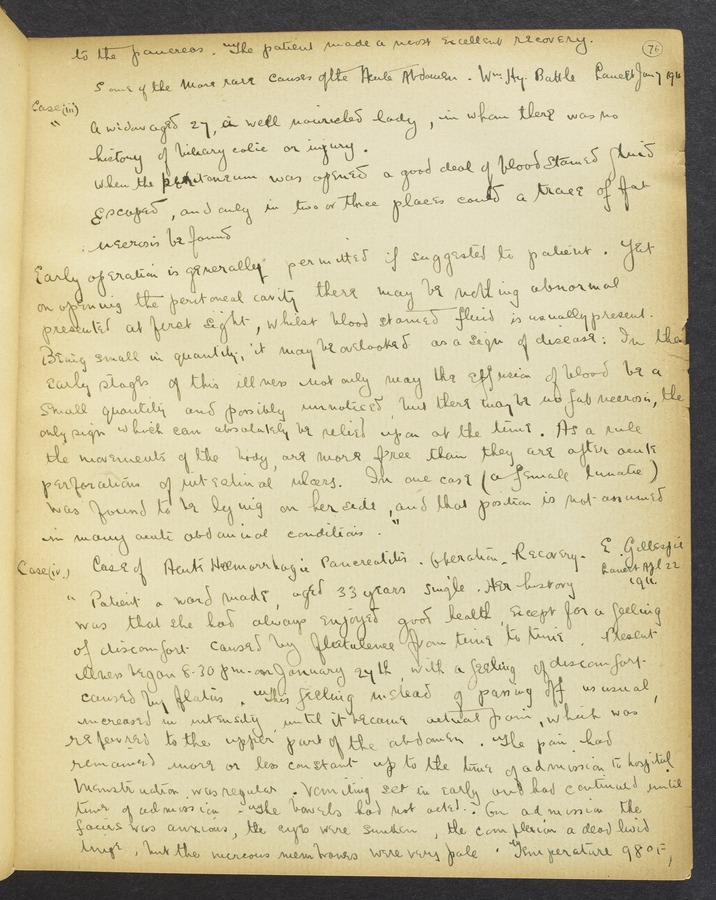 to the pancreas. The patient made a most excellent recovery.
76
Some of the more rare causes of the Acute Abdomen. Wm Hy. Battle Lancet Jan 7 1911
Case (iii)
" A widow aged 27, a well nourished lady, in whom there was no
history of biliary colic or injury.
When the peritoneum was opened a good deal of blood stained fluid
escaped, and only in two or three places could a trace of fat
necrosis be found
Early operation is generally permitted if suggested to patient. Yet
on opening the peritoneal cavity there may be nothing abnormal
presented at first sight, whilst blood stained fluid is usually present.
Being small in quantity, it may be overlooked as a sign of disease: In the
early stages of this illness not only may the effusion of blood be a
small quantity and possibly unnoticed, but there may be no fat necrosis, the
only sign which can absolutely be relied upon at the time. As a rule
the movements of the body are more free than they are after acute
perforations of intestinal ulcers. In one case (a female lunatic)
was found to be lying on her side, and that position is not assumed
in many acute abdominal conditions."
Case (iv.) Case of Acute Haemorrhagic Pancreatitis. Operation. Recovery. E. Gillespie
Lancet Apl 22
1911.
" Patient a ward maid, aged 33 years single. Her history
was that she had always enjoyed good health, except for a feeling
of discomfort caused by flatulence from time to time. Present
illness began 8-30 pm. on January 27th, with a feeling of discomfort
caused by flatus. This feeling instead of passing off as usual,
increased in intensity until it became actual pain, which was
referred to the upper part of the abdomen. The pain had
remained more or less constant up to the time of admission to hospital
Menstruation was regular. Vomiting set in early and had continued until
time of admission. The bowels had not acted. On admission the
facies was anxious, the eyes were sunken, the complexion a dead livid
tinge, but the mucous membranes were very pale. Temperature 98° F,